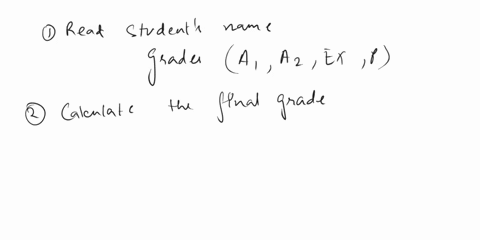 ① Read Student's name
grades (A1, A2, Ex, P)
② Calculate the final grade